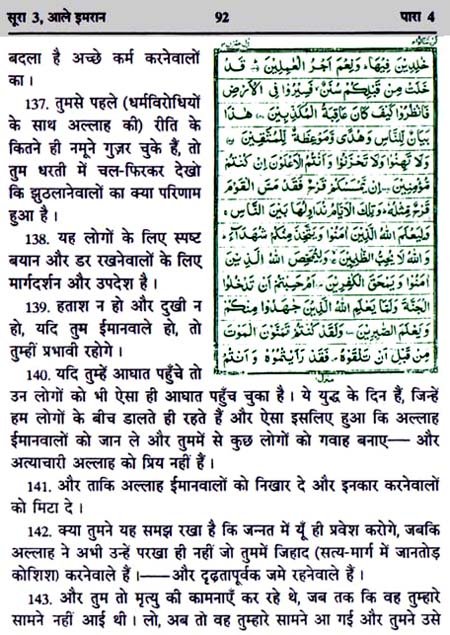 सूरा 3, आले इमरान 92 पारा 4
बदला है अच्छे कर्म करनेवालों
का ।
137. तुमसे पहले (धर्मविरोधियों
के साथ अल्लाह की) रीति के
कितने ही नमूने गुज़र चुके हैं, तो
तुम धरती में चल-फिरकर देखो
कि झुठलानेवालों का क्या परिणाम
हुआ है ।
138. यह लोगों के लिए स्पष्ट
बयान और डर रखनेवालों के लिए
मार्गदर्शन और उपदेश है ।
139. हताश न हो और दुखी न
हो, यदि तुम ईमानवाले हो, तो
तुम्हीं प्रभावी रहोगे ।
140. यदि तुम्हें आघात पहुँचे तो
خٰلِدِيْنَ فِيْهَا ۭ وَنِعْمَ اَجْرُ الْعٰمِلِيْنَ ۝ قَدْ
خَلَتْ مِنْ قَبْلِكُمْ سُنَنٌ ۙ فَسِيْرُوْا فِى الْاَرْضِ
فَانْظُرُوْا كَيْفَ كَانَ عَاقِبَةُ الْمُكَذِّبِيْنَ ۝ هٰذَا
بَيَانٌ لِّلنَّاسِ وَهُدًى وَّمَوْعِظَةٌ لِّلْمُتَّقِيْنَ ۝
وَلَا تَهِنُوْا وَلَا تَحْزَنُوْا وَاَنْتُمُ الْاَعْلَوْنَ اِنْ كُنْتُمْ
مُّؤْمِنِيْنَ ۝ اِنْ يَّمْسَسْكُمْ قَرْحٌ فَقَدْ مَسَّ الْقَوْمَ
قَرْحٌ مِّثْلُهٗ ۭ وَتِلْكَ الْاَيَّامُ نُدَاوِلُهَا بَيْنَ النَّاسِ ۚ
وَلِيَعْلَمَ اللّٰهُ الَّذِيْنَ اٰمَنُوْا وَيَتَّخِذَ مِنْكُمْ شُهَدَآءَ ۭ
وَاللّٰهُ لَا يُحِبُّ الظّٰلِمِيْنَ ۝ وَلِيُمَحِّصَ اللّٰهُ الَّذِيْنَ
اٰمَنُوْا وَيَمْحَقَ الْكٰفِرِيْنَ ۝ اَمْ حَسِبْتُمْ اَنْ تَدْخُلُوا
الْجَنَّةَ وَلَمَّا يَعْلَمِ اللّٰهُ الَّذِيْنَ جٰهَدُوْا مِنْكُمْ
وَيَعْلَمَ الصّٰبِرِيْنَ ۝ وَلَقَدْ كُنْتُمْ تَمَنَّوْنَ الْمَوْتَ
مِنْ قَبْلِ اَنْ تَلْقَوْهُ ۠ فَقَدْ رَاَيْتُمُوْهُ وَاَنْتُمْ
उन लोगों को भी ऐसा ही आघात पहुँच चुका है । ये युद्ध के दिन हैं, जिन्हें
हम लोगों के बीच डालते ही रहते हैं और ऐसा इसलिए हुआ कि अल्लाह
ईमानवालों को जान ले और तुममें से कुछ लोगों को गवाह बनाए— और
अत्याचारी अल्लाह को प्रिय नहीं हैं ।
141. और ताकि अल्लाह ईमानवालों को निखार दे और इनकार करनेवालों
को मिटा दे ।
142. क्या तुमने यह समझ रखा है कि जन्नत में यूँ ही प्रवेश करोगे, जबकि
अल्लाह ने अभी उन्हें परखा ही नहीं जो तुममें जिहाद (सत्य-मार्ग में जानतोड़
कोशिश) करनेवाले हैं ।— और दृढ़तापूर्वक जमे रहनेवाले हैं ।
143. और तुम तो मृत्यु की कामनाएँ कर रहे थे, जब तक कि वह तुम्हारे
सामने नहीं आई थी । लो, अब तो वह तुम्हारे सामने आ गई और तुमने उसे